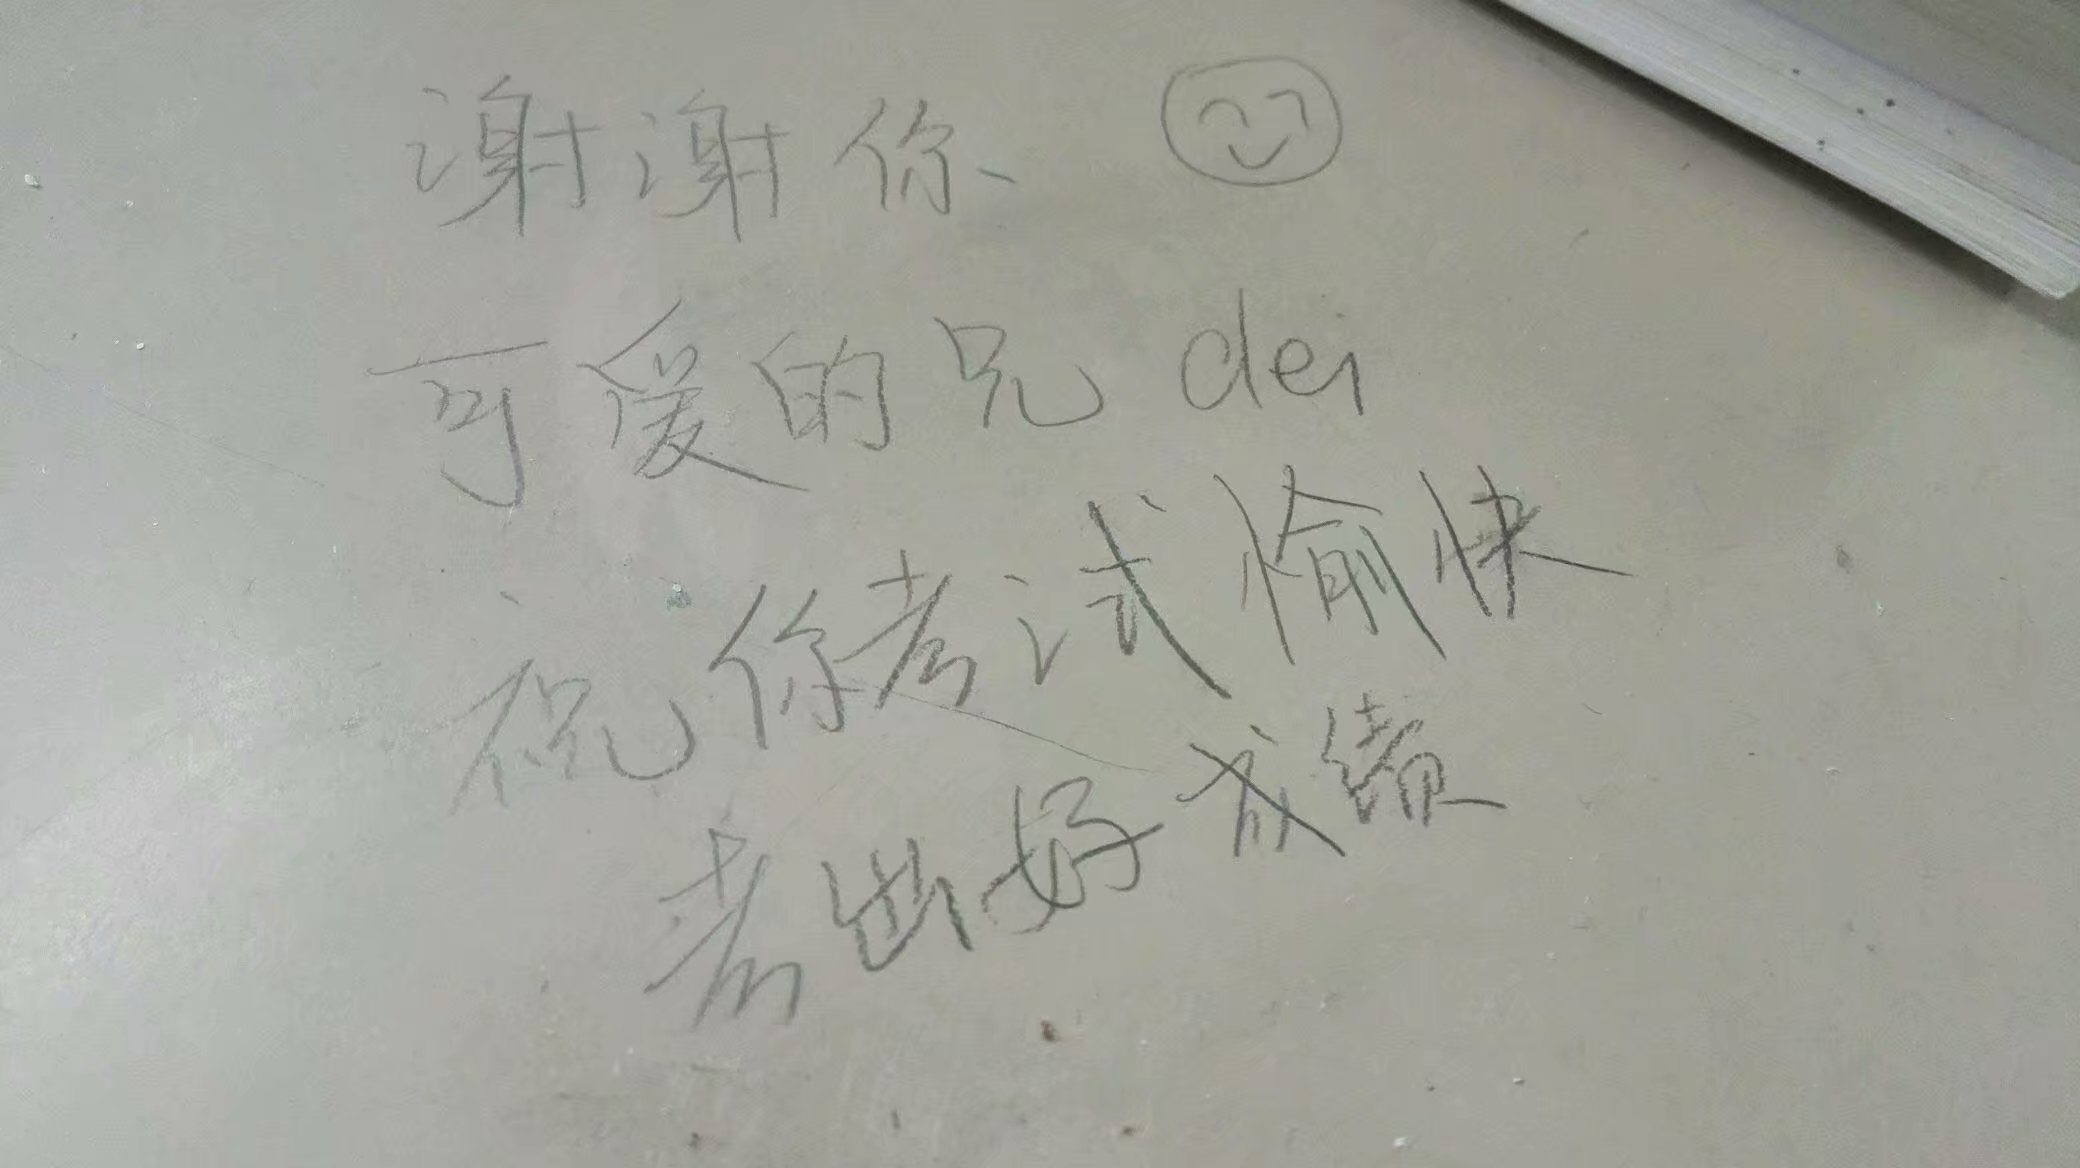 谢谢你
可爱的兄dei
祝你考试愉快
考出好成绩